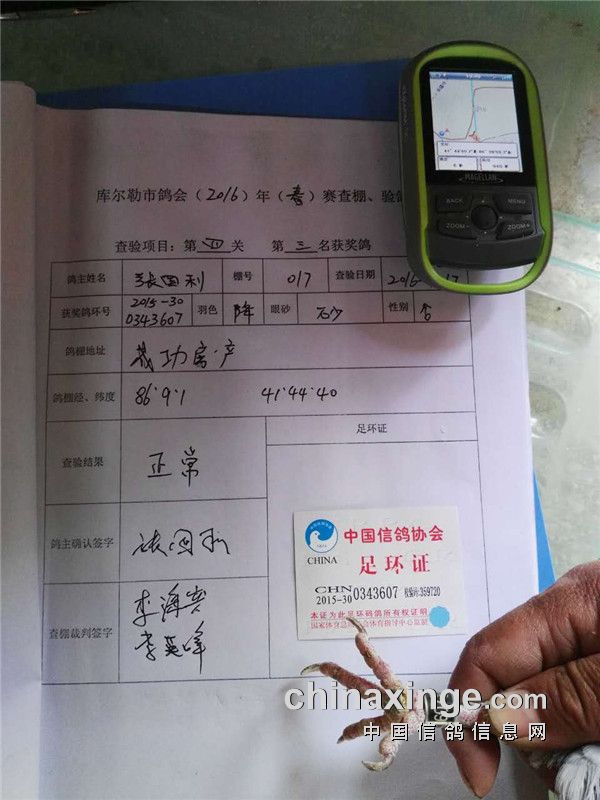 库尔勒市鸽会(2016)年(春)赛查棚、验
查验项目：第四关 第三名获奖鸽
鸽主姓名 张国利 棚号 017 查验日期
获奖鸽环号 2015-30 0343607 羽色 降 眼砂 砂 性别
鸽棚地址 成功房产
鸽棚经、纬度 86°9′1 41°44′40
足环证
查验结果 正常
鸽主确认签字 张国利
查棚裁判签字 李海 李英峰
中国信鸽协会
CHINA 足环证
CHN
2015-30 0343607 :359720
本证为此足环码鸽所有权证明
MAGELLAN
BACK MENU
ZOOM- ZOOM+
chinaxinge.com
中国信鸽信息网